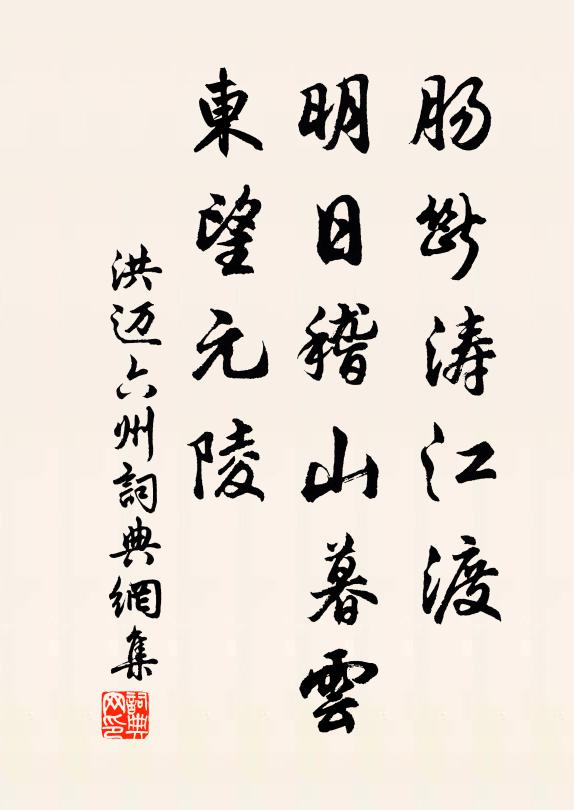 肠断涛江渡
明日稽山暮雲
東望元陵
洪迈六州詞典網集
詞典网印